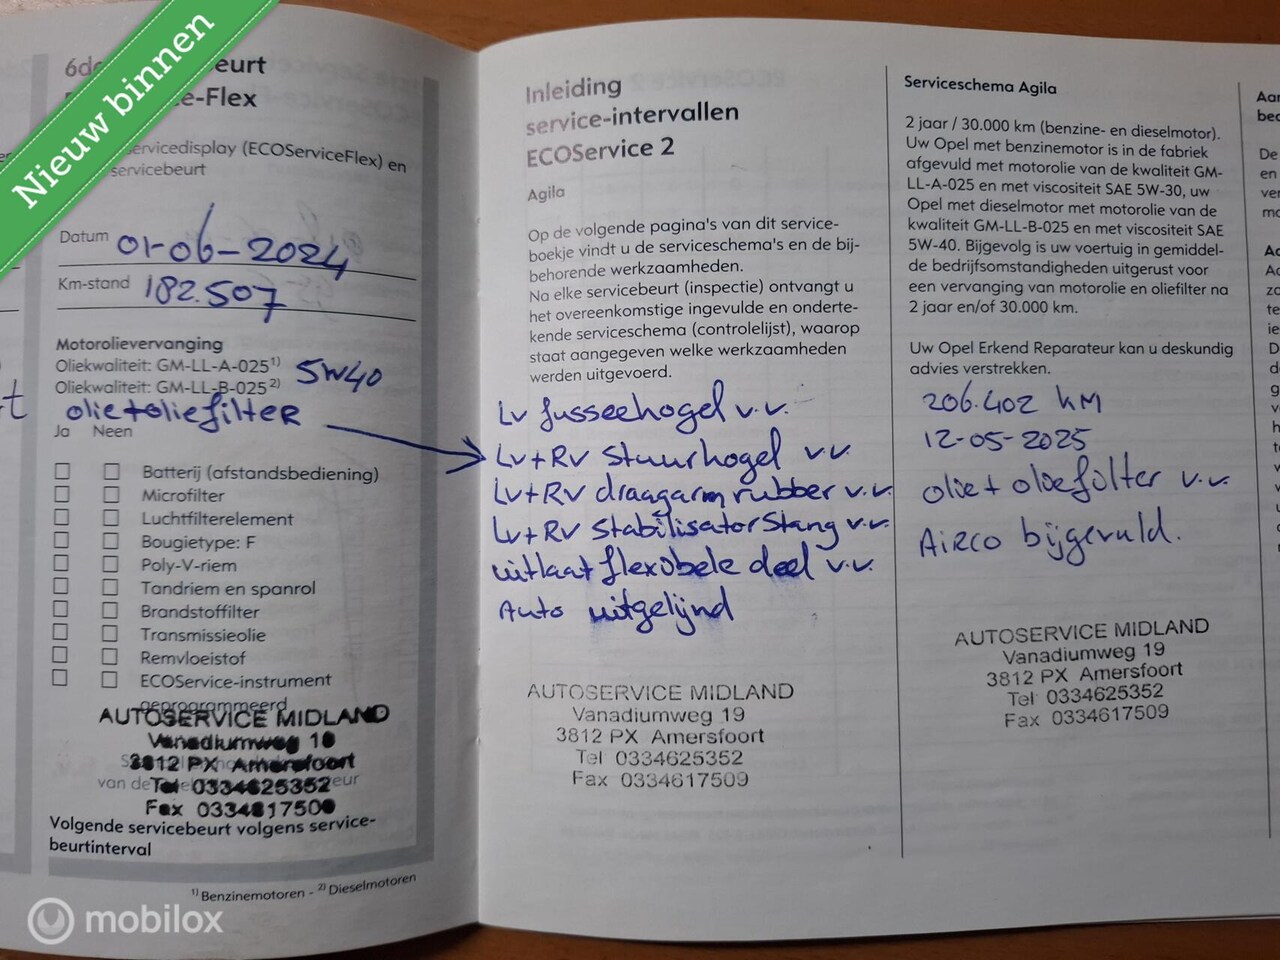 Nieuw binnen
eurt
e-Flex
servicedisplay (ECOServiceFlex) en
servicebeurt
Datum 01-06-2024
Km-stand 182.507
Motorolievervanging
Oliekwaliteit: GM-LL-A-025¹⁾ 5W40
Oliekwaliteit: GM-LL-B-025²⁾
olie+oliefilter
Ja Neen
Batterij (afstandsbediening)
Microfilter
Luchtfilterelement
Bougietype: F
Poly-V-riem
Tandriem en spanrol
Brandstoffilter
Transmissieolie
Remvloeistof
ECOService-instrument
geprogrammeerd
AUTOSERVICE MIDLAND
Vanadiumweg 19
3812 PX Amersfoort
Tel 0334625352
Fax 0334617509
Volgende servicebeurt volgens service-
beurtinterval
¹⁾ Benzinemotoren - ²⁾ Dieselmotoren
Inleiding
service-intervallen
ECOService 2
Agila
Op de volgende pagina's van dit service-
boekje vindt u de serviceschema's en de bij-
behorende werkzaamheden.
Na elke servicebeurt (inspectie) ontvangt u
het overeenkomstige ingevulde en onderte-
kende serviceschema (controlelijst), waarop
staat aangegeven welke werkzaamheden
werden uitgevoerd.
LV fusseehogel v.v.
LV+RV stuurhogel v.v.
LV+RV draagarmrubber v.v.
LV+RV Stabilisatorstang v.v.
uitlaat flexibele deel v.v.
Auto uitgelijnd
AUTOSERVICE MIDLAND
Vanadiumweg 19
3812 PX Amersfoort
Tel 0334625352
Fax 0334617509
Serviceschema Agila
2 jaar / 30.000 km (benzine- en dieselmotor).
Uw Opel met benzinemotor is in de fabriek
afgevuld met motorolie van de kwaliteit GM-
LL-A-025 en met viscositeit SAE 5W-30, uw
Opel met dieselmotor met motorolie van de
kwaliteit GM-LL-B-025 en met viscositeit SAE
5W-40. Bijgevolg is uw voertuig in gemiddel-
de bedrijfsomstandigheden uitgerust voor
een vervanging van motorolie en oliefilter na
2 jaar en/of 30.000 km.
Uw Opel Erkend Reparateur kan u deskundig
advies verstrekken.
206.402 KM
12-05-2025
olie+ oliefilter v.v.
Airco bijgevuld.
AUTOSERVICE MIDLAND
Vanadiumweg 19
3812 PX Amersfoort
Tel 0334625352
Fax 0334617509
mobilox